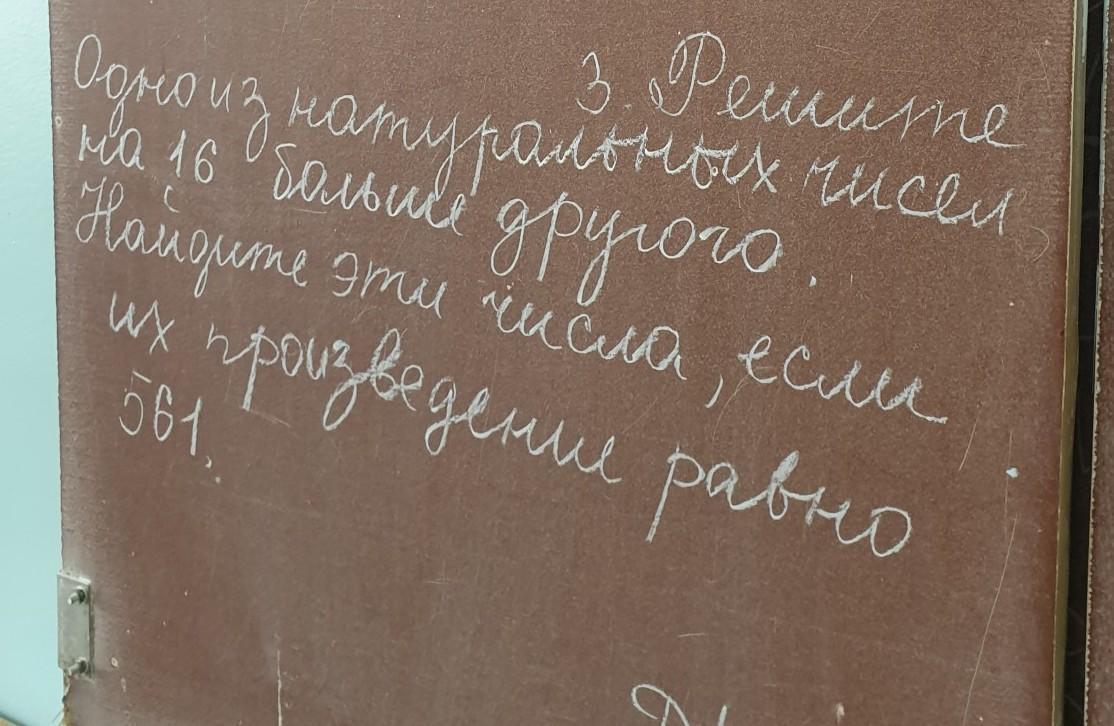 3. Решите
Одно из натуральных чисел
на 16 больше другого.
Найдите эти числа, если
их произведение равно
561.